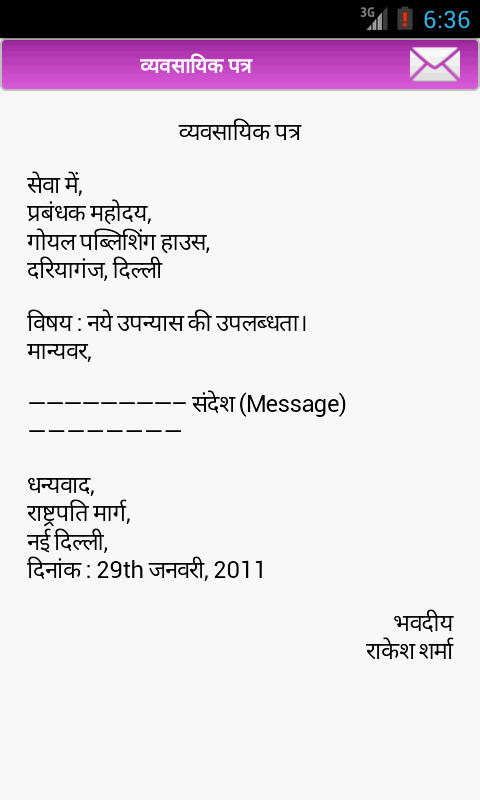 3G 6:36
व्यवसायिक पत्र
व्यवसायिक पत्र
सेवा में,
प्रबंधक महोदय,
गोयल पब्लिशिंग हाउस,
दरियागंज, दिल्ली
विषय : नये उपन्यास की उपलब्धता।
मान्यवर,
————————– संदेश (Message)
————————
धन्यवाद,
राष्ट्रपति मार्ग,
नई दिल्ली,
दिनांक : 29th जनवरी, 2011
भवदीय
राकेश शर्मा